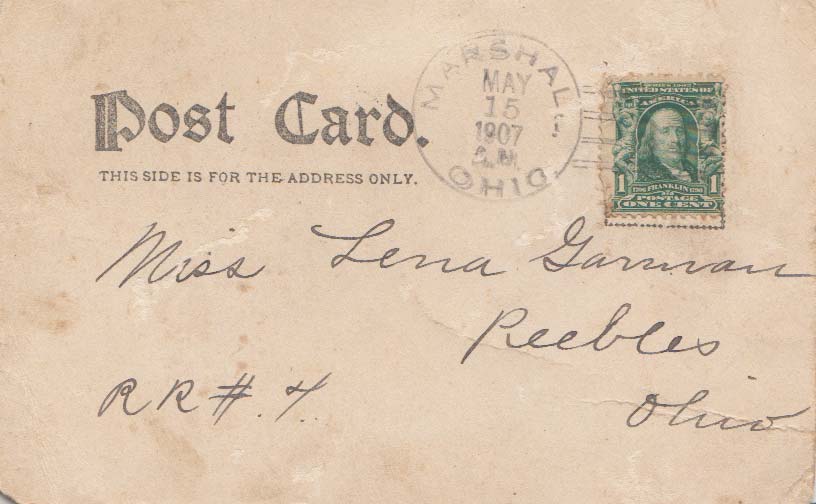 Post Card.
THIS SIDE IS FOR THE ADDRESS ONLY.
MARSHALL
MAY
15
1907
A.M.
OHIO.
SERIES 1902
UNITED STATES OF
AMERICA
1 1
1706 FRANKLIN 1790
POSTAGE
ONE CENT
Miss Lena Garman
Peebles
R R #. 4
Ohio